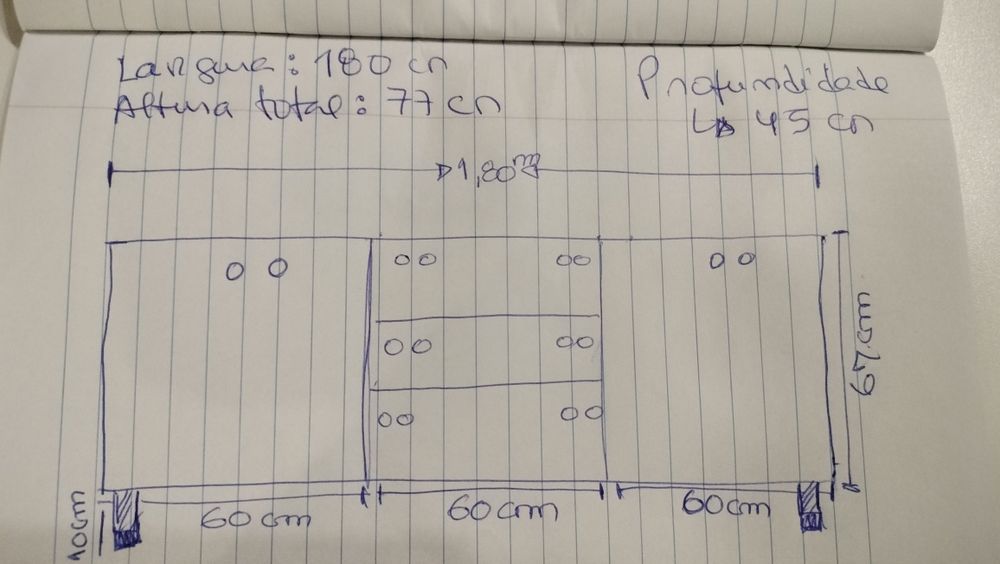 Largura: 180 cm
Altura total: 77 cm
Profundidade
↳ 45 cm
1,80m
67cm
10cm
60cm
60cm
60cm